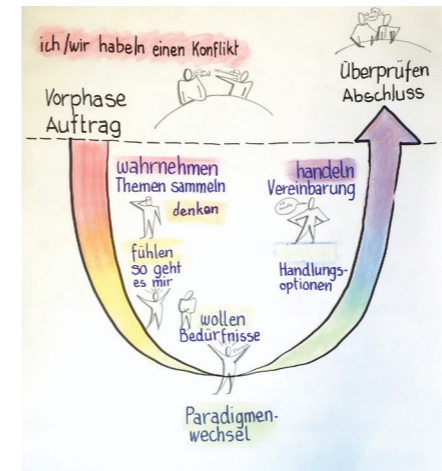 ich/wir habeln einen Konflikt
Vorphase
Auftrag
Überprüfen
Abschluss
wahrnehmen
Themen sammeln
denken
fühlen
so geht
es mir
wollen
Bedürfnisse
Paradigmen-
wechsel
handeln
Vereinbarung
Handlungs-
optionen